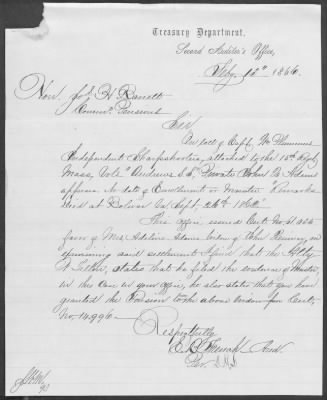 Treasury Department,
Second Auditor's Office,
Feby 12th 1866.
Hon. Jos. H. Barrett
Comr. Pensions
Sir
On roll of Capt. Wm Plummers
Independent Sharpshooters, attached to the 15th Regt
Mass. Vols "Andrews S.S." Private John Q. Adams
appears No date of Enrollment or Muster Remarks
died at Bolivar Va Sept. 26th 1862"
This office issued Cert. No.
favor of Mrs Adeline Adams widow of John
examining said settlement I find that the Atty
states that he filed the evidence of
in this Case in your office, he also states that you have
granted the Pension to the above widow per Cert.
No. 14.996.
Respectfully
E. B. French Aud.
Per